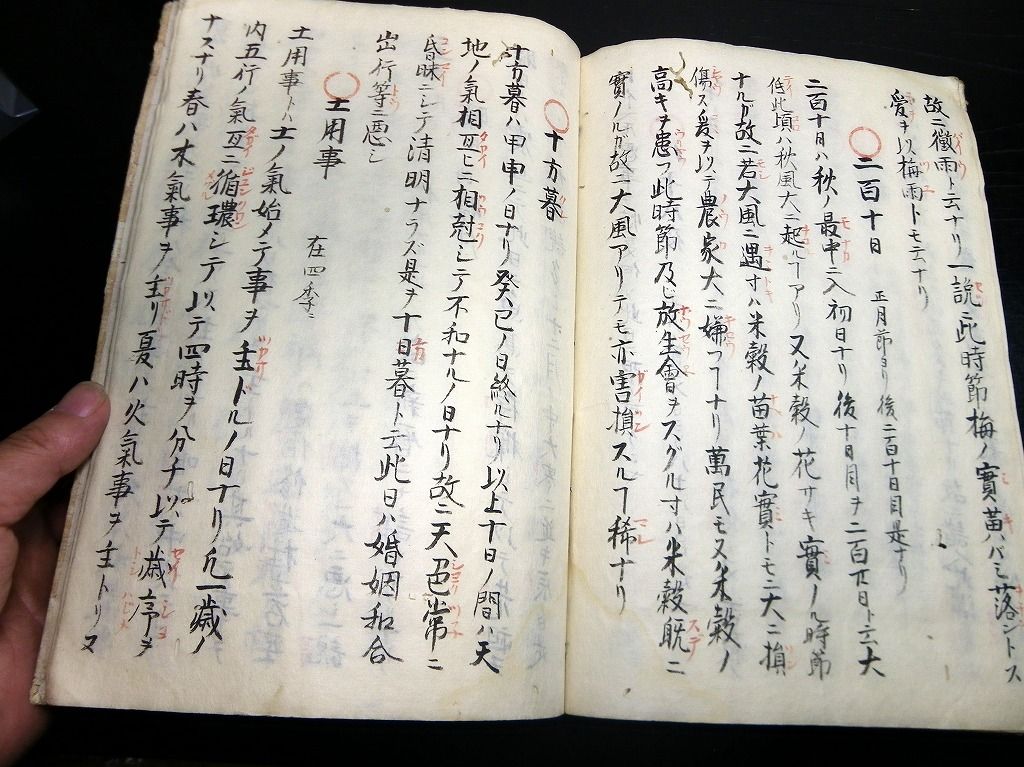 故ニ黴雨ト云ナリ一説ニ此時節梅ノ實黄バミ落ントス
爰ヲ以梅雨トモ云ナリ
○二百十日 正月節ヨリ後二百十日目是ナリ
二百十日ハ秋ノ最中ニ入初日ナリ後十日目ヲ二百廿日ト云大
低此頃ハ秋風大ニ起ルヿアリ又米穀ノ花サキ實ノル時節
ナルガ故ニ若大風ニ遇寸ハ米穀ノ苗葉花實トモニ大ニ損
傷ス爰ヲ以テ農家大ニ嫌フナリ萬民モ又米穀ノ
高キヲ患フ此時節及ヒ放生會ヲスグル寸ハ米穀既ニ
實ノルガ故ニ大風アリテモ亦害損スルヿ稀ナリ
○十方暮
十方暮ハ甲申ノ日ナリ癸巳ノ日終ルナリ以上十日ノ間ハ天
地ノ氣相互ヒニ相尅シテ不和ナルノ日ナリ故ニ天色常ニ
昏昧ニシテ清明ナラズ是ヲ十日暮ト云此日ハ婚姻和合
出行等ニ悪シ
○土用事 在四季ニ
土用事トハ土ノ氣始メテ事ヲ主トルノ日ナリ凡一歳ノ
内五行ノ氣互ニ循環シテ以テ四時ヲ分チ以テ歳序ヲ
ナスナリ春ハ木氣事ヲ主リ夏ハ火氣事ヲ主トリ又